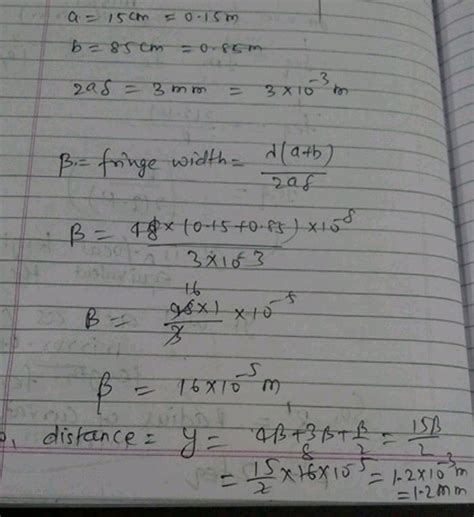 a = 15cm = 0.15m
b = 85cm = 0.85m
2aδ = 3mm = 3×10⁻³ m
β = fringe width = λ(a+b) / 2aδ
β = 48×(0.15+0.85)×10⁻⁸ / 3×10⁻³
16
β = 48×1 / 3 ×10⁻⁵
β = 16×10⁻⁵ m
distance = y = 4β+3β+β/2 = 15β/2
8
= 15/2 ×16×10⁻⁵ = 1.2×10⁻³m
= 1.2mm